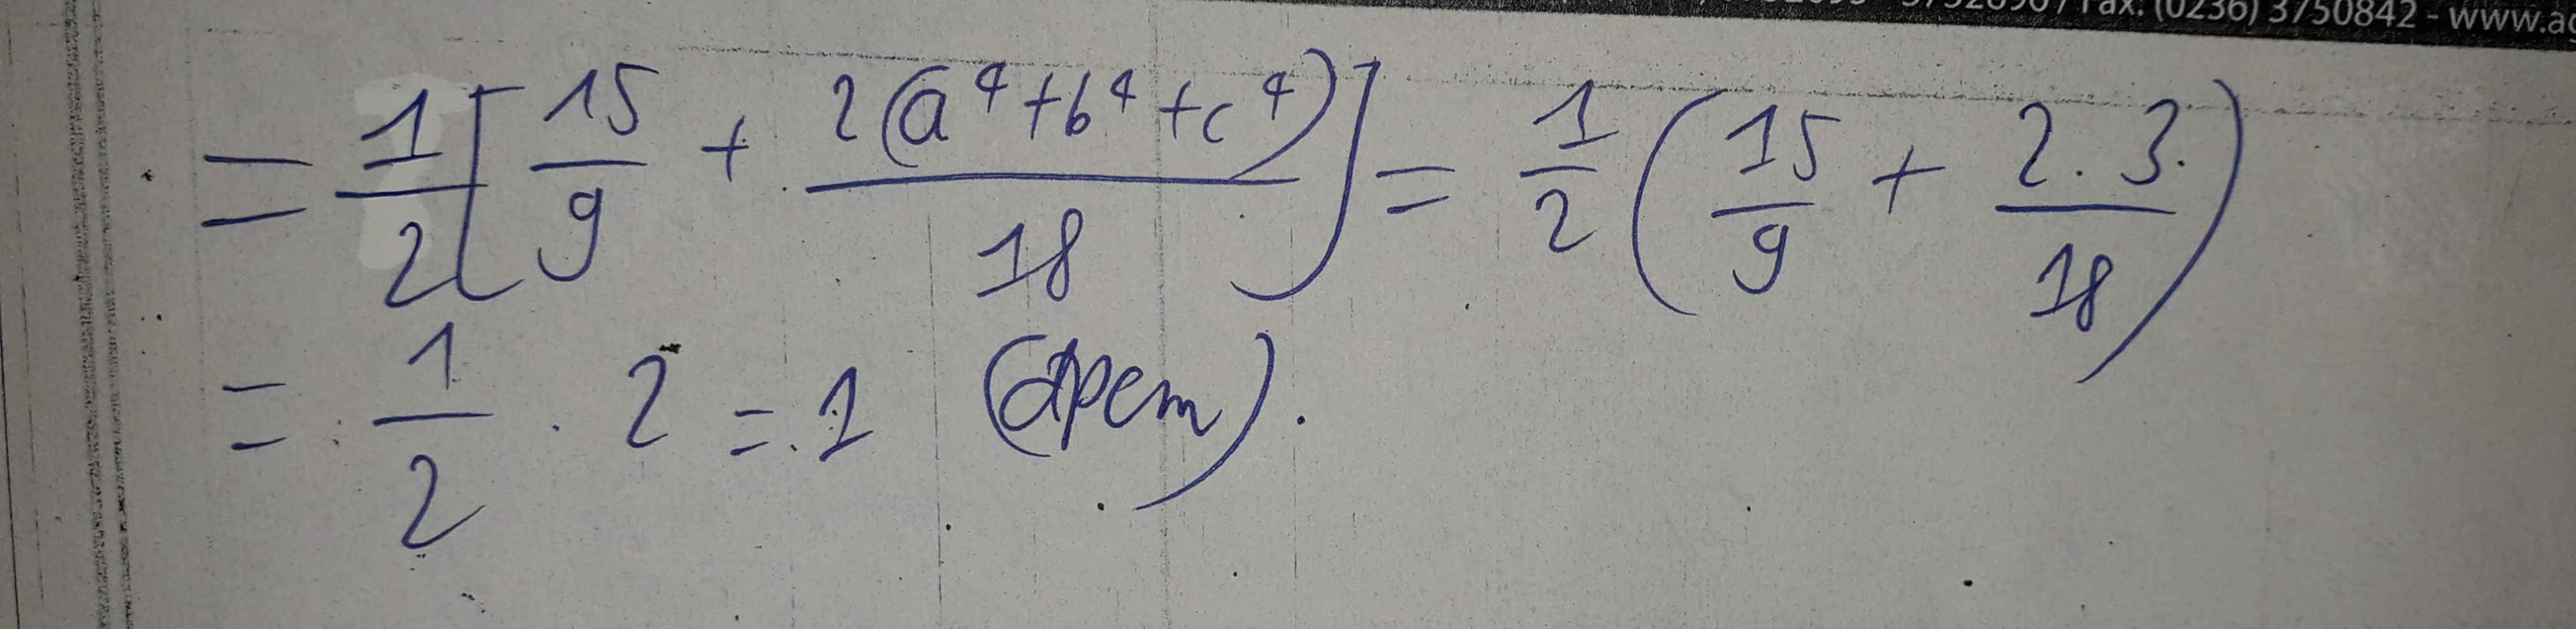 Fax: (0236) 3750842 - www.ag
= 1/2 [ 15/9 + 2(a⁴ + b⁴ + c⁴)/18 ] = 1/2 ( 15/9 + 2.3/18 )
= 1/2 . 2 = 1 (đpcm).